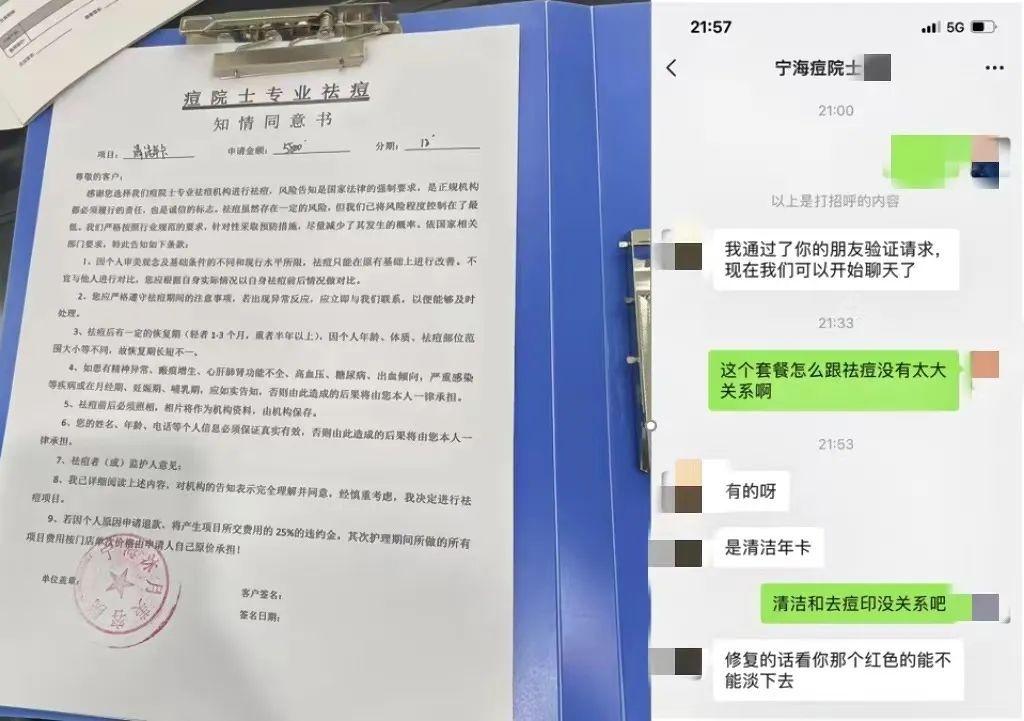 痘院士专业祛痘
知情同意书
项目: 清洁卡 申请金额: 分期: 12
尊敬的客户:
感谢您选择我们痘院士专业祛痘机构进行祛痘，风险告知是国家法律的强制要求，是正规机构
都必须履行的责任，也是诚信的标志。祛痘虽然存在一定的风险，但我们已将风险程度控制在了最
低。我们严格按照行业规范的要求，针对性采取预防措施，尽量减少了其发生的概率。依国家相关
部门要求，特此告知如下条款:
1、因个人审美观念及基础条件的不同和现行水平所限，祛痘只能在原有基础上进行改善。不
宜与他人进行对比，您应根据自身实际情况以自身祛痘前后情况做对比。
2、您应严格遵守祛痘期间的注意事项，若出现异常反应，应立即与我们联系，以便能够及时
处理。
3、祛痘后有一定的恢复期（轻者1-3个月，重者半年以上），因个人年龄、体质、祛痘部位范
围大小等不同，故恢复期长短不一、
4、如患有精神异常、瘢痕增生、心肝肺肾功能不全、高血压、糖尿病、出血倾向，严重感染
等疾病或在月经期、妊娠期、哺乳期，应如实告知，否则由此造成的后果将由您本人一律承担。
5、祛痘前后必须照相，相片将作为机构资料，由机构保存。
6、您的姓名、年龄、电话等个人信息必须保证真实有效，否则由此造成的后果将由您本人一
律承担.
7、祛痘者（或）监护人意见:
8、我已详细阅读上述内容，对机构的告知表示完全理解并同意，经慎重考虑，我决定进行祛
痘项目。
9、若因个人原因申请退款、将产生项目所交费用的25%的违约金，其次护理期间所做的所有
项目费用按门店单次价格由申请人自己原价承担!
单位盖章:
客户签名:
签名日期:
21:57
5G
宁海痘院士
21:00
以上是打招呼的内容
我通过了你的朋友验证请求，
现在我们可以开始聊天了
21:33
这个套餐怎么跟祛痘没有太大
关系啊
21:53
有的呀
是清洁年卡
清洁和去痘印没关系吧
修复的话看你那个红色的能不
能淡下去